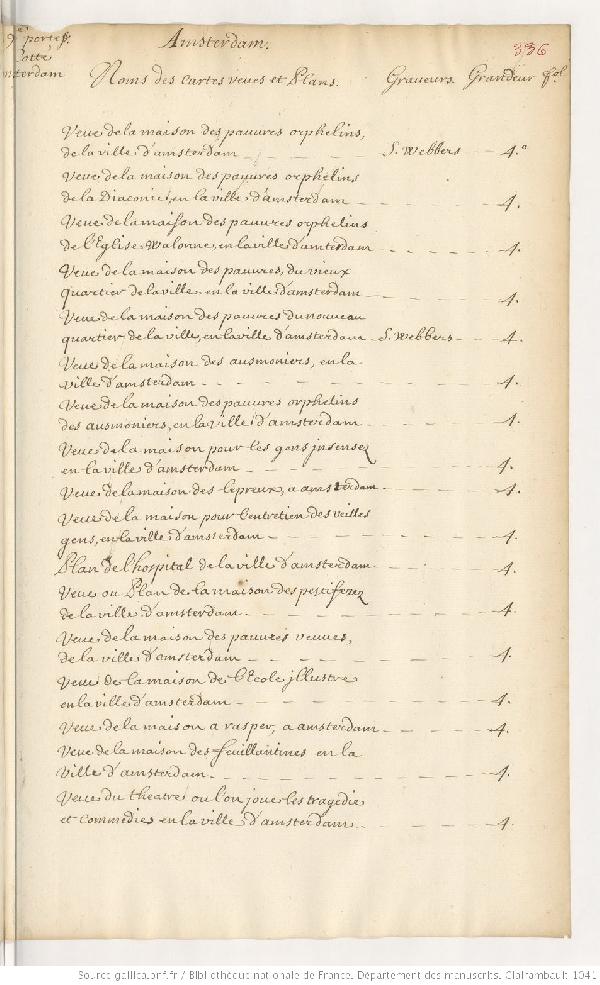 Amsterdam.
336
Noms des cartes veues et Plans. Graveurs. Grandeur fol.
Veue de la maison des pauvres orphelins,
de la ville d'amsterdam S. Webbers 4.°
Veue de la maison des pauures orphelins
de la Diaconie, en la ville d'amsterdam 4.
Veue de la maison des pauures orphelins
de l'Eglise Walonne, en la ville d'amterdam 4.
Veue de la maison des pauures, du vieux
quartier de la ville en la ville d'amsterdam 4.
Veue de la maison des pauures du nouveau
quartier de la ville, en la ville d'amsterdam S. Webbers 4.
Veue de la maison des ausmoniers, en la
ville d'amsterdam 4.
Veue de la maison des pauures orphelins
des ausmoniers, en la ville d'amsterdam 4.
Veue de la maison pour les gens jnsensez
en la ville d'amsterdam 4.
Veue de la maison des lepreux, a amsterdam 4.
Veue de la maison pour l'entretien des veilles
gens, en la ville d'amsterdam 4.
Plan de l'hospital de la ville d'amsterdam 4.
Veue ou Plan de la maison des pestiferez
de la ville d'amsterdam 4.
Veue de la maison des pauures veuues,
de la ville d'amsterdam 4.
Veue de la maison de l'Ecole jllustre
en la ville d'amsterdam 4.
Veue de la maison a rasper, a amsterdam 4.
Veue de la maison des feuillantines en la
ville d'amsterdam 4.
Veue du theatre ou l'on joue les tragedies
et commedies en la ville d'amsterdam 4.
Source gallica.bnf.fr / Bibliothèque nationale de France. Département des manuscrits. Clairambault 1041